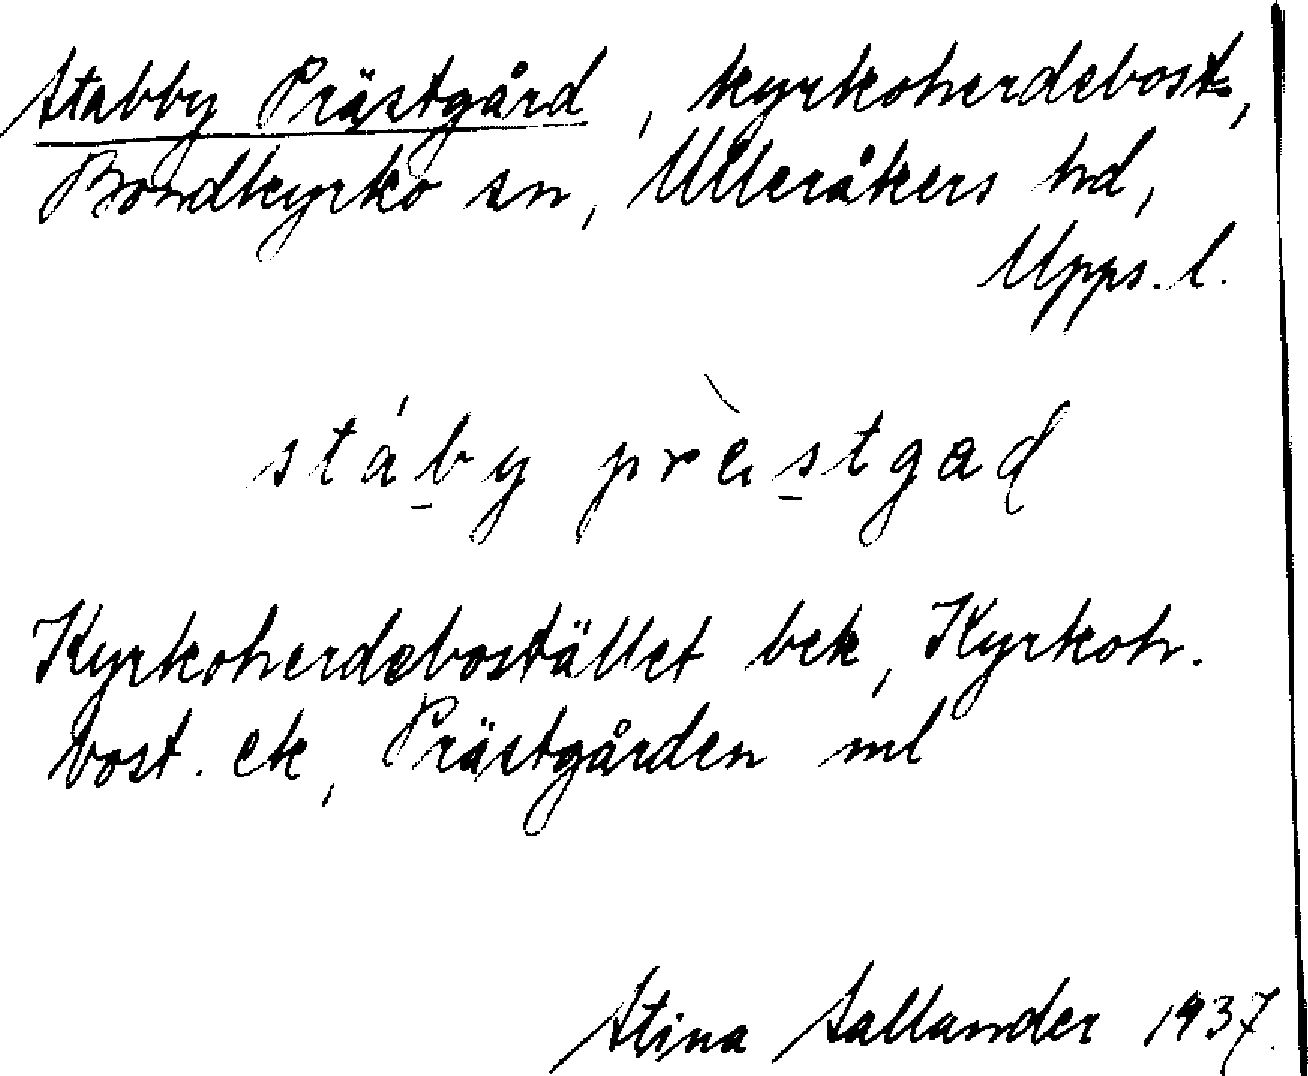 Stabby Prästgård, kyrkoherdebost.,
Bondkyrko sn, Ulleråkers hd,
Upps. l.
stáby prèstgad
Kyrkoherdebostället bek, Kyrkoh.
bost. ek, Prästgården ml
Stina Sallander 1937.